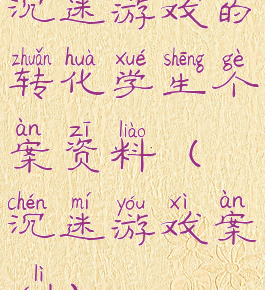 沉迷游戏的
zhuǎn huà xué shēng gè
转化学生个
àn zī liào
案资料（
chén mí yóu xì àn
沉迷游戏案
lì